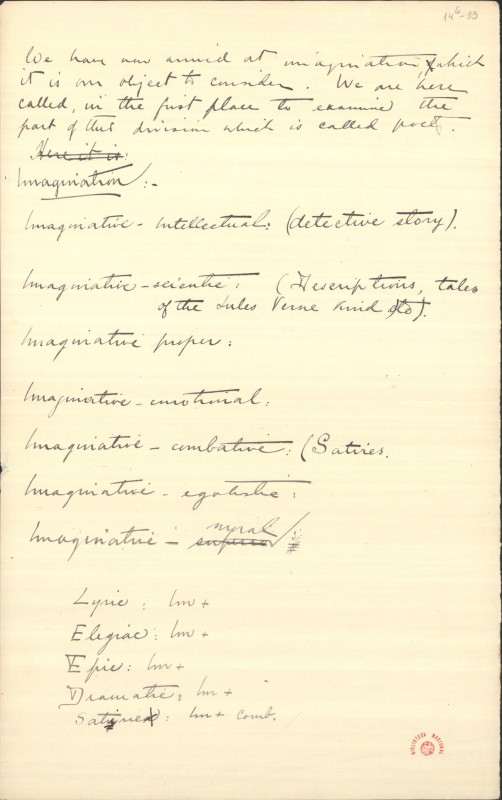 14⁶-39
We have now arrived at imagination, which
it is our object to consider. We are here
called, in the first place to examine the
part of this division which is called poet.
Here it is:
Imagination:-
Imaginative - intellectual: (detective story).
Imaginative - scientic: (Descriptions, tales
of the Jules Verne kind etc).
Imaginative proper:
Imaginative - emotional:
Imaginative - combative: (Satires.
Imaginative - egotistic:
moral
Imaginative - superior:
Lyric: Im +
Elegiac: Im +
Epic: Im +
Dramatic: Im +
Satire: Im + comb.
BIBLIOTECA NACIONAL